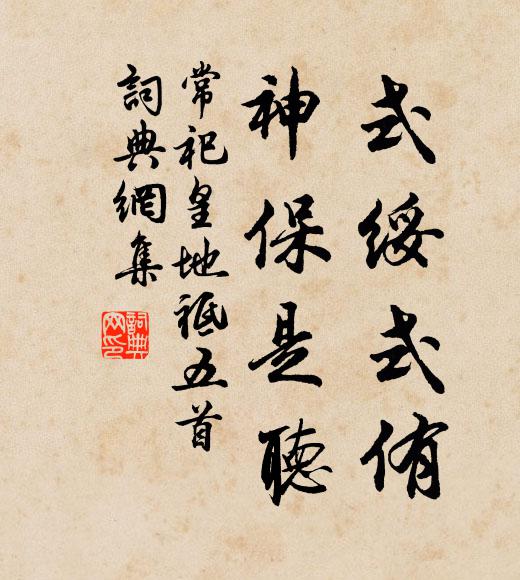 式綏式侑
神保是聽
常祀皇地祗五首
詞典網集
詞典網印